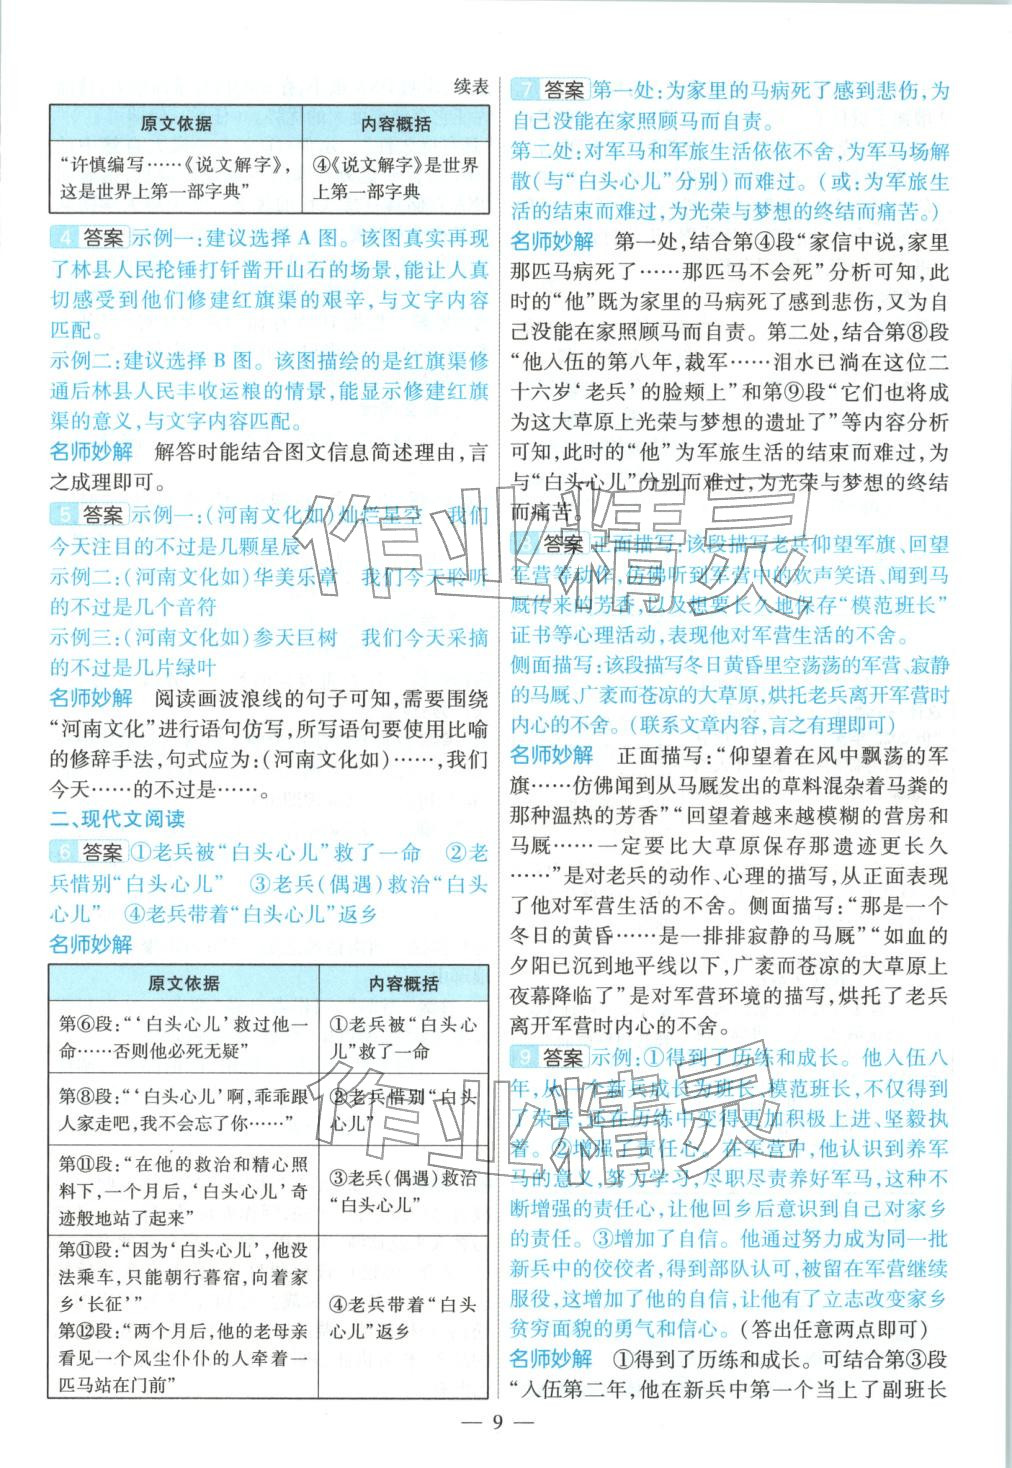 续表
原文依据 内容概括
“许慎编写……《说文解字》， ④《说文解字》是世界
这是世界上第一部字典” 上第一部字典
4 答案 示例一：建议选择 A 图。该图真实再现
了林县人民抡锤打钎凿开山石的场景，能让人真
切感受到他们修建红旗渠的艰辛，与文字内容
匹配。
示例二：建议选择 B 图。该图描绘的是红旗渠修
通后林县人民丰收运粮的情景，能显示修建红旗
渠的意义，与文字内容匹配。
名师妙解 解答时能结合图文信息简述理由，言
之成理即可。
5 答案 示例一：（河南文化如）灿烂星空 我们
今天注目的不过是几颗星辰
示例二：（河南文化如）华美乐章 我们今天聆听
的不过是几个音符
示例三：（河南文化如）参天巨树 我们今天采摘
的不过是几片绿叶
名师妙解 阅读画波浪线的句子可知，需要围绕
“河南文化”进行语句仿写，所写语句要使用比喻
的修辞手法，句式应为：（河南文化如）……，我们
今天……的不过是……。
二、现代文阅读
6 答案 ①老兵被“白头心儿”救了一命 ②老
兵惜别“白头心儿” ③老兵（偶遇）救治“白头
心儿” ④老兵带着“白头心儿”返乡
名师妙解
原文依据 内容概括
第⑥段：“‘白头心儿’救过他一 ①老兵被“白头心
命……否则他必死无疑” 儿”救了一命
第⑧段：“‘白头心儿’啊，乖乖跟 ②老兵惜别“白头
人家走吧，我不会忘了你……” 心儿”
第⑪段：“在他的救治和精心照
料下，一个月后，‘白头心儿’奇 ③老兵（偶遇）救治
迹般地站了起来” “白头心儿”
第⑪段：“因为‘白头心儿’，他没
法乘车，只能朝行暮宿，向着家
乡‘长征’” ④老兵带着“白头
第⑫段：“两个月后，他的老母亲 心儿”返乡
看见一个风尘仆仆的人牵着一
匹马站在门前”
7 答案 第一处：为家里的马病死了感到悲伤，为
自己没能在家照顾马而自责。
第二处：对军马和军旅生活依依不舍，为军马场解
散（与“白头心儿”分别）而难过。（或：为军旅生
活的结束而难过，为光荣与梦想的终结而痛苦。）
名师妙解 第一处，结合第④段“家信中说，家里
那匹马病死了……那匹马不会死”分析可知，此
时的“他”既为家里的马病死了感到悲伤，又为自
己没能在家照顾马而自责。第二处，结合第⑧段
“他入伍的第八年，裁军……泪水已淌在这位二
十六岁‘老兵’的脸颊上”和第⑨段“它们也将成
为这大草原上光荣与梦想的遗址了”等内容分析
可知，此时的“他”为军旅生活的结束而难过，为
与“白头心儿”分别而难过，为光荣与梦想的终结
而痛苦。
8 答案 正面描写：该段描写老兵仰望军旗、回望
军营等动作，仿佛听到军营中的欢声笑语、闻到马
厩传来的芳香，以及想要长久地保存“模范班长”
证书等心理活动，表现他对军营生活的不舍。
侧面描写：该段描写冬日黄昏里空荡荡的军营、寂静
的马厩、广袤而苍凉的大草原，烘托老兵离开军营时
内心的不舍。（联系文章内容，言之有理即可）
名师妙解 正面描写：“仰望着在风中飘荡的军
旗……仿佛闻到从马厩发出的草料混杂着马粪的
那种温热的芳香”“回望着越来越模糊的营房和
马厩……一定要比大草原保存那遗迹更长久
……”是对老兵的动作、心理的描写，从正面表现
了他对军营生活的不舍。侧面描写：“那是一个
冬日的黄昏……是一排排寂静的马厩”“如血的
夕阳已沉到地平线以下，广袤而苍凉的大草原上
夜幕降临了”是对军营环境的描写，烘托了老兵
离开军营时内心的不舍。
9 答案 示例：①得到了历练和成长。他入伍八
年，从一个新兵成长为班长、模范班长，不仅得到
了荣誉，还在历练中变得更加积极上进、坚毅执
着。②增强了责任心。在军营中，他认识到养军
马的意义，努力学习，尽职尽责养好军马，这种不
断增强的责任心，让他回乡后意识到自己对家乡
的责任。③增加了自信。他通过努力成为同一批
新兵中的佼佼者，得到部队认可，被留在军营继续
服役，这增加了他的自信，让他有了立志改变家乡
贫穷面貌的勇气和信心。（答出任意两点即可）
名师妙解 ①得到了历练和成长。可结合第③段
“入伍第二年，他在新兵中第一个当上了副班长
— 9 —
作业精灵
作业精灵